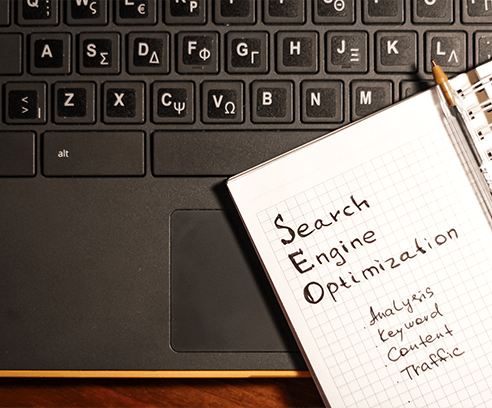 A S Σ D Δ F Φ G Γ H J Ξ K L Λ
< > | Z X C Ψ V Ω B N M
alt
Search
Engine
Optimization
. Analysis
. Keyword
. Content
. Traffic